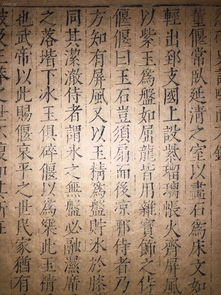 董偃常臥延清之室以畫石爲床文如
輕出郅支國上設紫瑠璃帳火齊屏風
以紫玉爲盤如屈龍皆用雜寶飾之侍
偃偃曰玉石豈須扇而後凉耶侍者乃
方知有屏風又以玉精爲盤貯氷於膝
同其潔澈侍者謂氷之無盤必融濕席
之落堦下氷玉俱碎偃以爲樂此玉精
也武帝以此賜偃哀平之世民家猶有